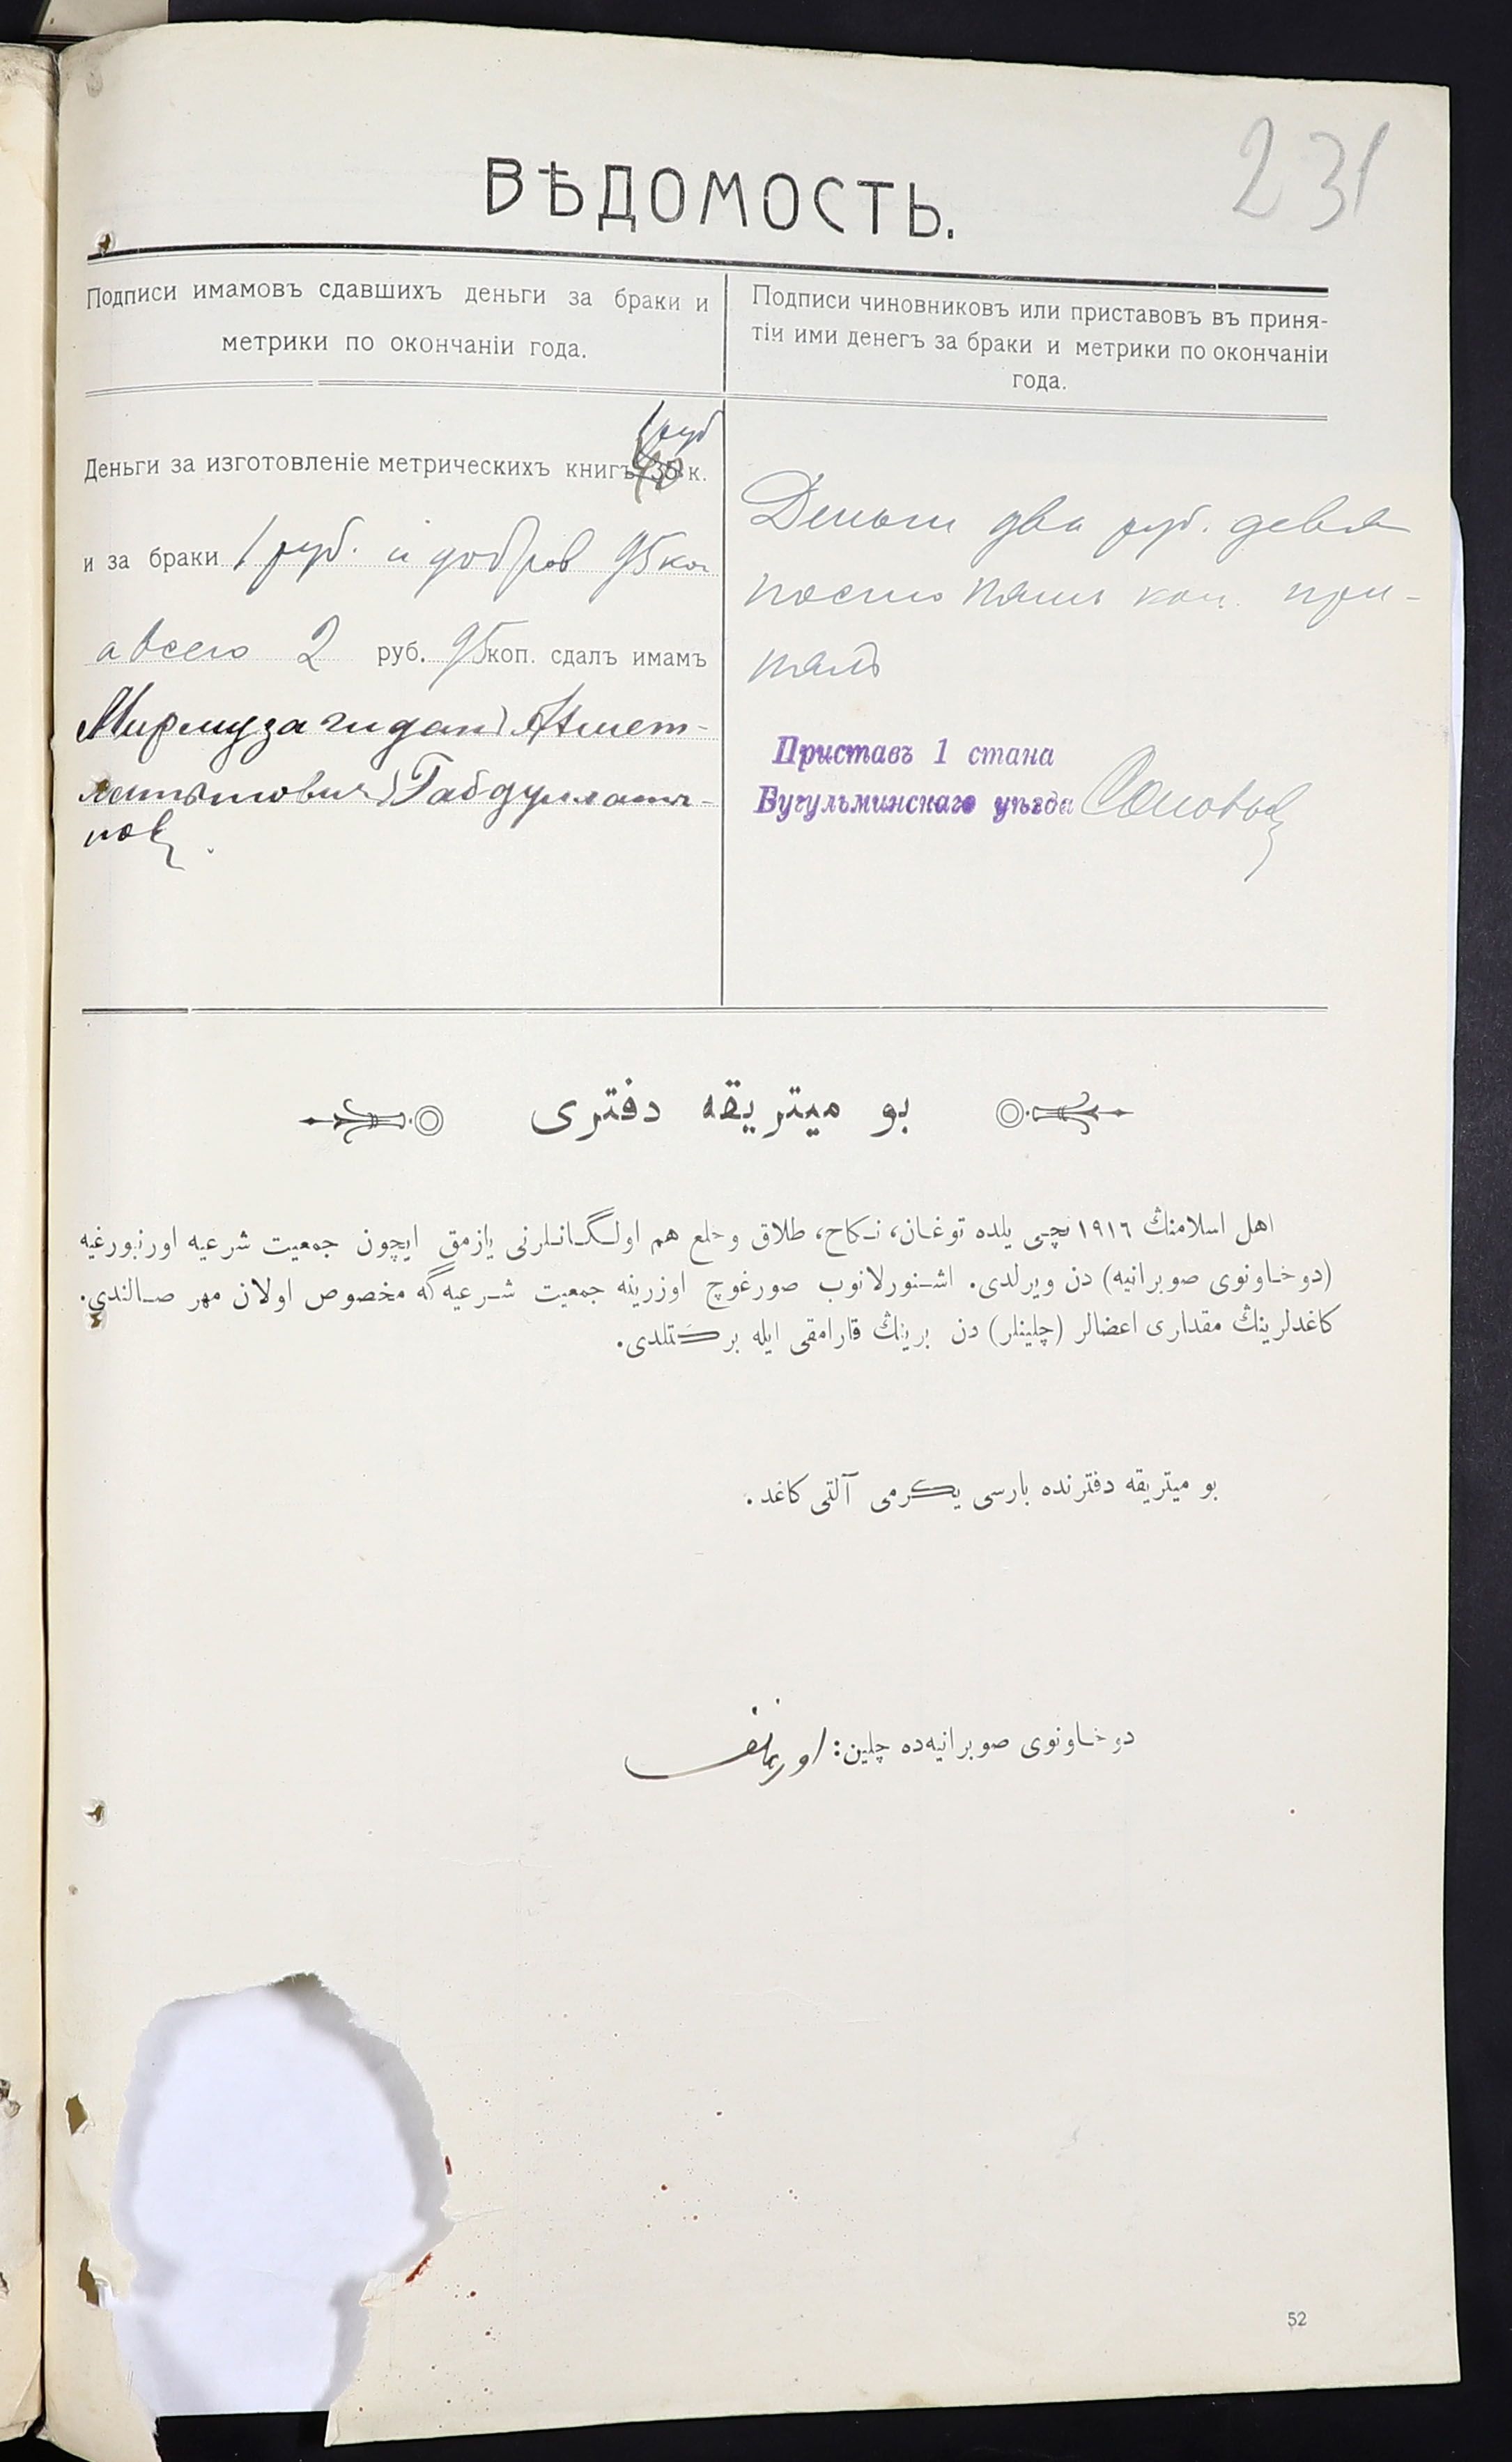 231
ВѢДОМОСТЬ.
Подписи имамовъ сдавшихъ деньги за браки и
метрики по окончаніи года.
Подписи чиновниковъ или приставовъ въ приня-
тіи ими денегъ за браки и метрики по окончаніи
года.
1 руб
Деньги за изготовленіе метрическихъ книгъ 35 к.
и за браки 1 руб. и 95 коп
а всего 2 руб. 95 коп. сдалъ имамъ
Ахмет-
Габдуллати-
пов
Деньги два руб. девя
носто пять коп. при-
нялъ
Приставъ 1 стана
Бугульминскаго уѣзда
بو ميتريقه دفترى
اهل اسلامنڭ ١٩١٦ نچى يلده توغان، نكاح، طلاق و خلع هم اولگانلرنى يازمق ايچون جمعيت شرعيه اورنبورغيه
(دوخاونوى صوبرانيه) دن ويرلدى. اشنورلانوب صورغوچ اوزرينه جمعيت شرعيه گه مخصوص اولان مهر صالندى.
كاغدلرينڭ مقدارى اعضالر (چلينلر) دن برينڭ قارامقى ايله بركتلدى.
بو ميتريقه دفترنده بارسى يكرمى آلتى كاغد.
دوخاونوى صوبرانيه‌ده چلين:
52